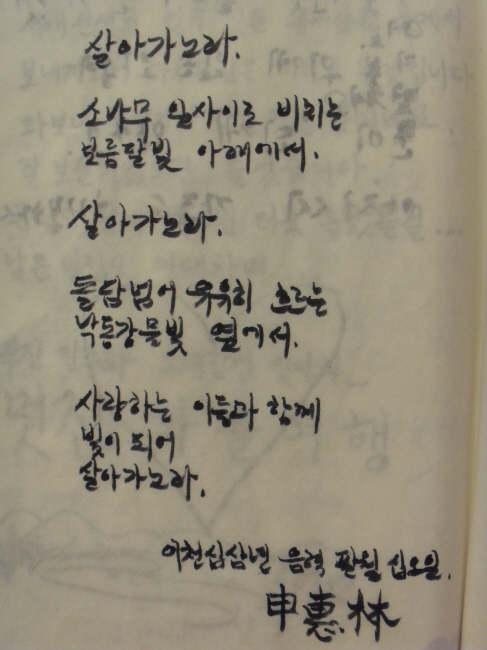 살아가노라.
소나무 잎사이로 비취는
보름달빛 아래에서.
살아가노라.
돌담넘어 유유히 흐르는
낙동강물빛 옆에서.
사랑하는 이들과 함께
빛이 되어
살아가노라.
이천십삼년 음력 팔월 십오일.
申惠林